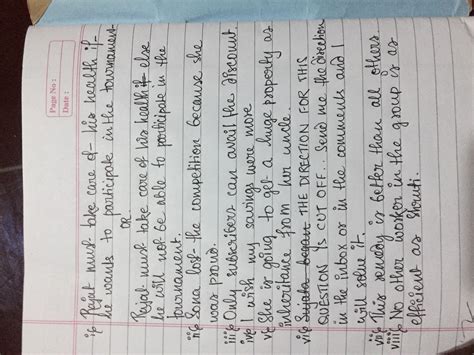 Page No :
Date :
i) Rajat must take care of his health if
he wants to participate in the tournament
OR
Rajat must take care of his health if else
he will not be able to participate in the
tournament.
ii) Sona lost the competition because she
was proud.
iii) Only subscribers can avail the discount
iv) I wish my savings were more
v) She is going to get a huge property as
inheritance from her uncle.
vi) Sujata began THE DIRECTION FOR THIS
QUESTION IS CUT OFF.. Send me the direction
in the inbox or in the comments and I
will solve it.
vii) This remedy is better than all others
viii) No other worker in the group is as
efficient as Shruti.